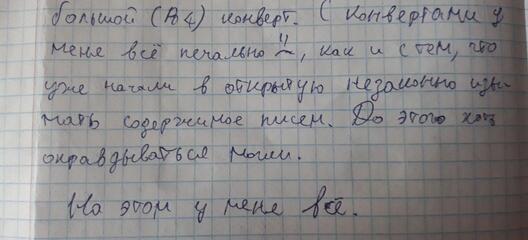 большой (А4) конверт. С конвертами у
меня всё печально, как и с тем, что
уже начали в открытую незаконно изы-
мать содержимое писем. До этого хоть
оправдываться могли.
На этом у меня всё.